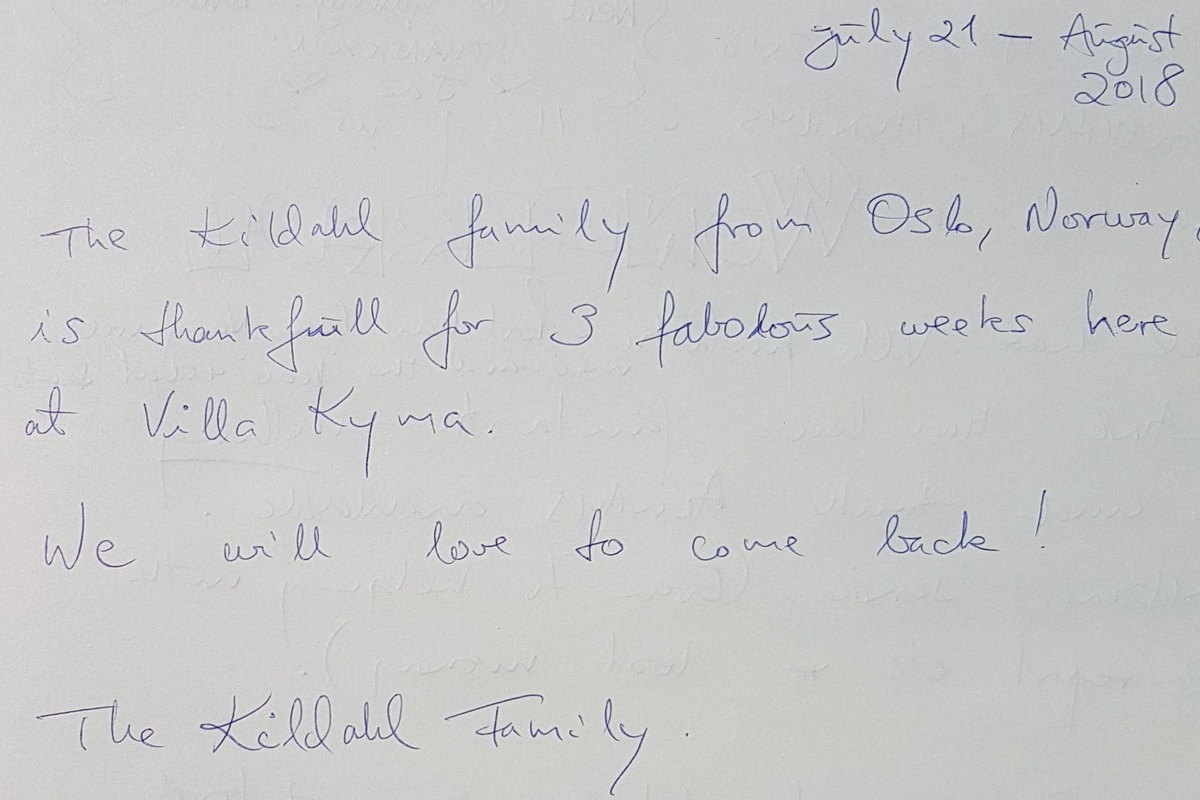 July 21 - August
2018
The Kildahl family from Oslo, Norway,
is thankfull for 3 fabolous weeks here
at Villa Kyma.
We will love to come back!
The Kildahl Family.